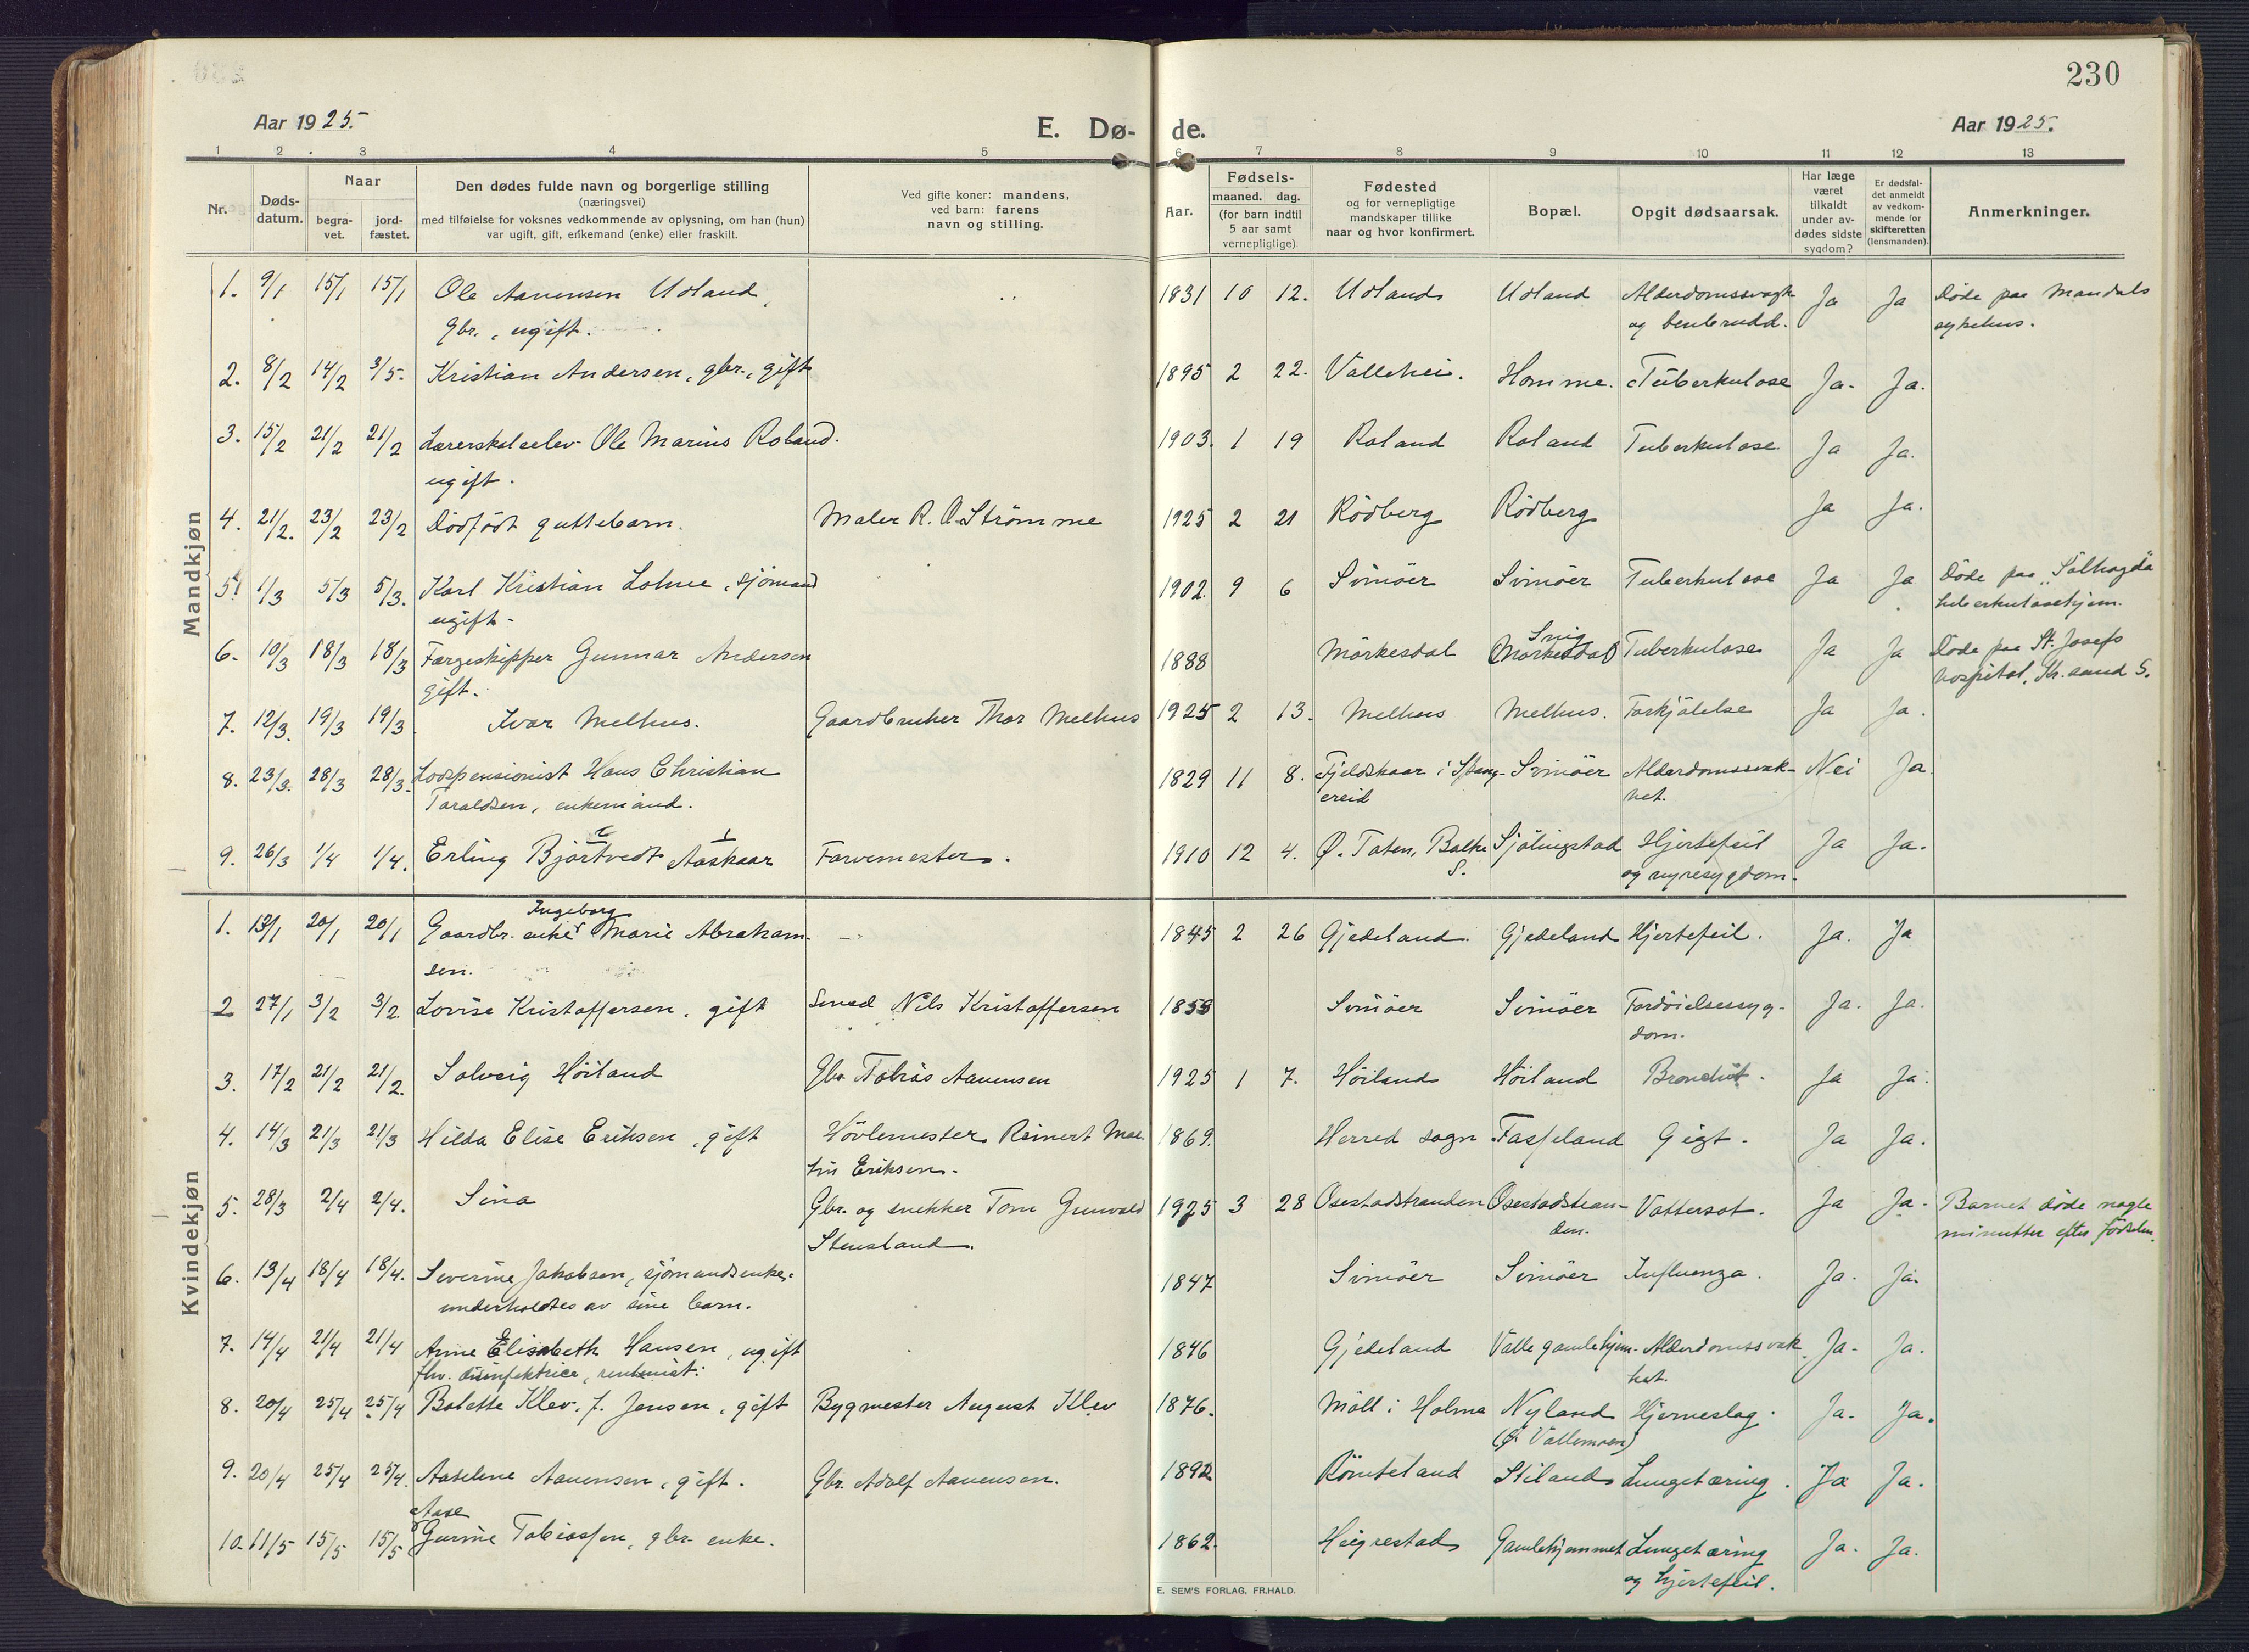 230
Aar 1925.
E. Dø- de.
Aar 1925.
1 2 3 4 5 6 7 8 9 10 11 12 13
Nr.
Døds-
datum.
Naar
begra-
vet.
jord-
fæstet.
Den dødes fulde navn og borgerlige stilling
(næringsvei)
med tilføielse for voksnes vedkommende av oplysning, om han (hun)
var ugift, gift, enkemand (enke) eller fraskilt.
Ved gifte koner: mandens,
ved barn: farens
navn og stilling.
Aar.
Fødsels-
maaned. dag.
(for barn indtil
5 aar samt
vernepligtige)
Fødested
og for vernepligtige
mandskaper tillike
naar og hvor konfirmert.
Bopæl.
Opgit dødsaarsak.
Har læge
været
tilkaldt
under av-
dødes sidste
sygdom?
Er dødsfal-
det anmeldt
av vedkom-
mende for
skifteretten
(lensmanden).
Anmerkninger.
Mandkjøn
1. 9/1 15/1 15/1 Ole Aanensen Udland, 1831 10 12. Udland Udland Alderdomssvagh. Ja Ja Døde paa Mandals
gbr., ugift. og benbrudd. sykehus.
2. 8/2 14/2 3/5. Kristian Andersen, gbr., gift 1895 2 22. Vallehei. Homme. Tuberkulose Ja. Ja.
3. 15/2 21/2 21/2 Lærerskoleelev Ole Marius Roland. 1903. 1 19 Roland Roland Tuberkulose Ja Ja.
ugift.
4. 21/2. 23/2 23/2 Dødfødt guttebarn. Maler R. O. Strømme 1925 2 21 Rødberg Rødberg Ja Ja.
5. 1/3 5/3 5/3. Karl Kristian Lohne, sjømand 1902. 9 6 Svinøer Svinøer Tuberkulose Ja Ja Døde paa "Solhøgda
ugift. tuberkulosehjem.
6. 10/3 18/3 18/3 Færgeskipper Gunnar Andersen 1888 Mørkesdal (Mørkesdal) Snig Tuberkulose Ja Ja Døde paa St. Josefs
gift. hospital, Kr.sand S.
7. 12/3. 19/3 19/3. Ivar Melhus. Gaardbruker Thor Melhus 1925 2 13. Melhus Melhus. Forkjølelse Ja Ja.
8. 23/3. 28/3 28/3. Lodspensionist Hans Christian 1829 11 8. Fjeldskaar i Spang- Svinøer Alderdomssvak- Nei Ja.
Taraldsen, enkemand. ereid het.
9. 26/3 1/4 1/4. Erling Bjørtvedt Aaskaar Farvemester. 1910 12 4. Ø. Toten, Balke Sjølingstad Hjertefeil Ja Ja.
S. og nyresygdom.
Kvindekjøn
1. 13/1 20/1 20/1 Gaardbr. enke Ingeborg Marie Abraham- 1845 2 26 Gjedeland. Gjedeland Hjertefeil. Ja. Ja
sen.
2 27/1 3/2 3/2. Lovise Kristoffersen, gift Smed Nils Kristoffersen 1853 Svinøer Svinøer Fordøielsessyg- Ja. Ja.
dom.
3. 17/2 21/2 21/2. Solveig Høiland Gbr. Tobias Aanensen 1925 1 7. Høiland Høiland Bronchit. Ja Ja.
4. 14/3 21/3 21/3 Hilda Elise Eriksen, gift Høvlemester Reinert Mar- 1869. Herred sogn Fasseland Gigt. Ja Ja.
tin Eriksen.
5. 28/3 2/4 2/4. Sina Gbr. og snekker Tom Gunvald 1925 3 28 Osestadstranden Osestadstran- Vattersot. Ja Ja. Barnet døde nogle
Stensland. den. minutter efter fødselen.
6. 13/4 18/4 18/4. Severine Jakobsen, sjømandsenke, 1847 Svinøer Svinøer Influenza. Ja. Ja.
underholdtes av sine barn.
7. 14/4 21/4 21/4 Anne Elisabeth Hansen, ugift 1846 Gjedeland Valle gamlehjem. Alderdomssvak Ja. Ja.
fhv. disinfektrice, rentenist. het.
8. 20/4 25/4 25/4 Bolette Klev, f. Jensen, gift Bygmester August Klev 1876. Møll i Holma Nyland Hjerneslag. Ja. Ja.
(Ø. Vallemoen)
9. 20/4 25/4 25/4. Aaselene Aanensen, gift. Gbr. Adolf Aanensen. 1892 Rømteland Stiland Lungetæring. Ja Ja.
10. 11/5 15/5 15/5 Aase Gurine Tobiassen, gbr. enke. 1862. Heigrestad Gamlehjemmet Lungetæring Ja. Ja.
og hjertefeil.
E. SEM'S FORLAG, FR.HALD.